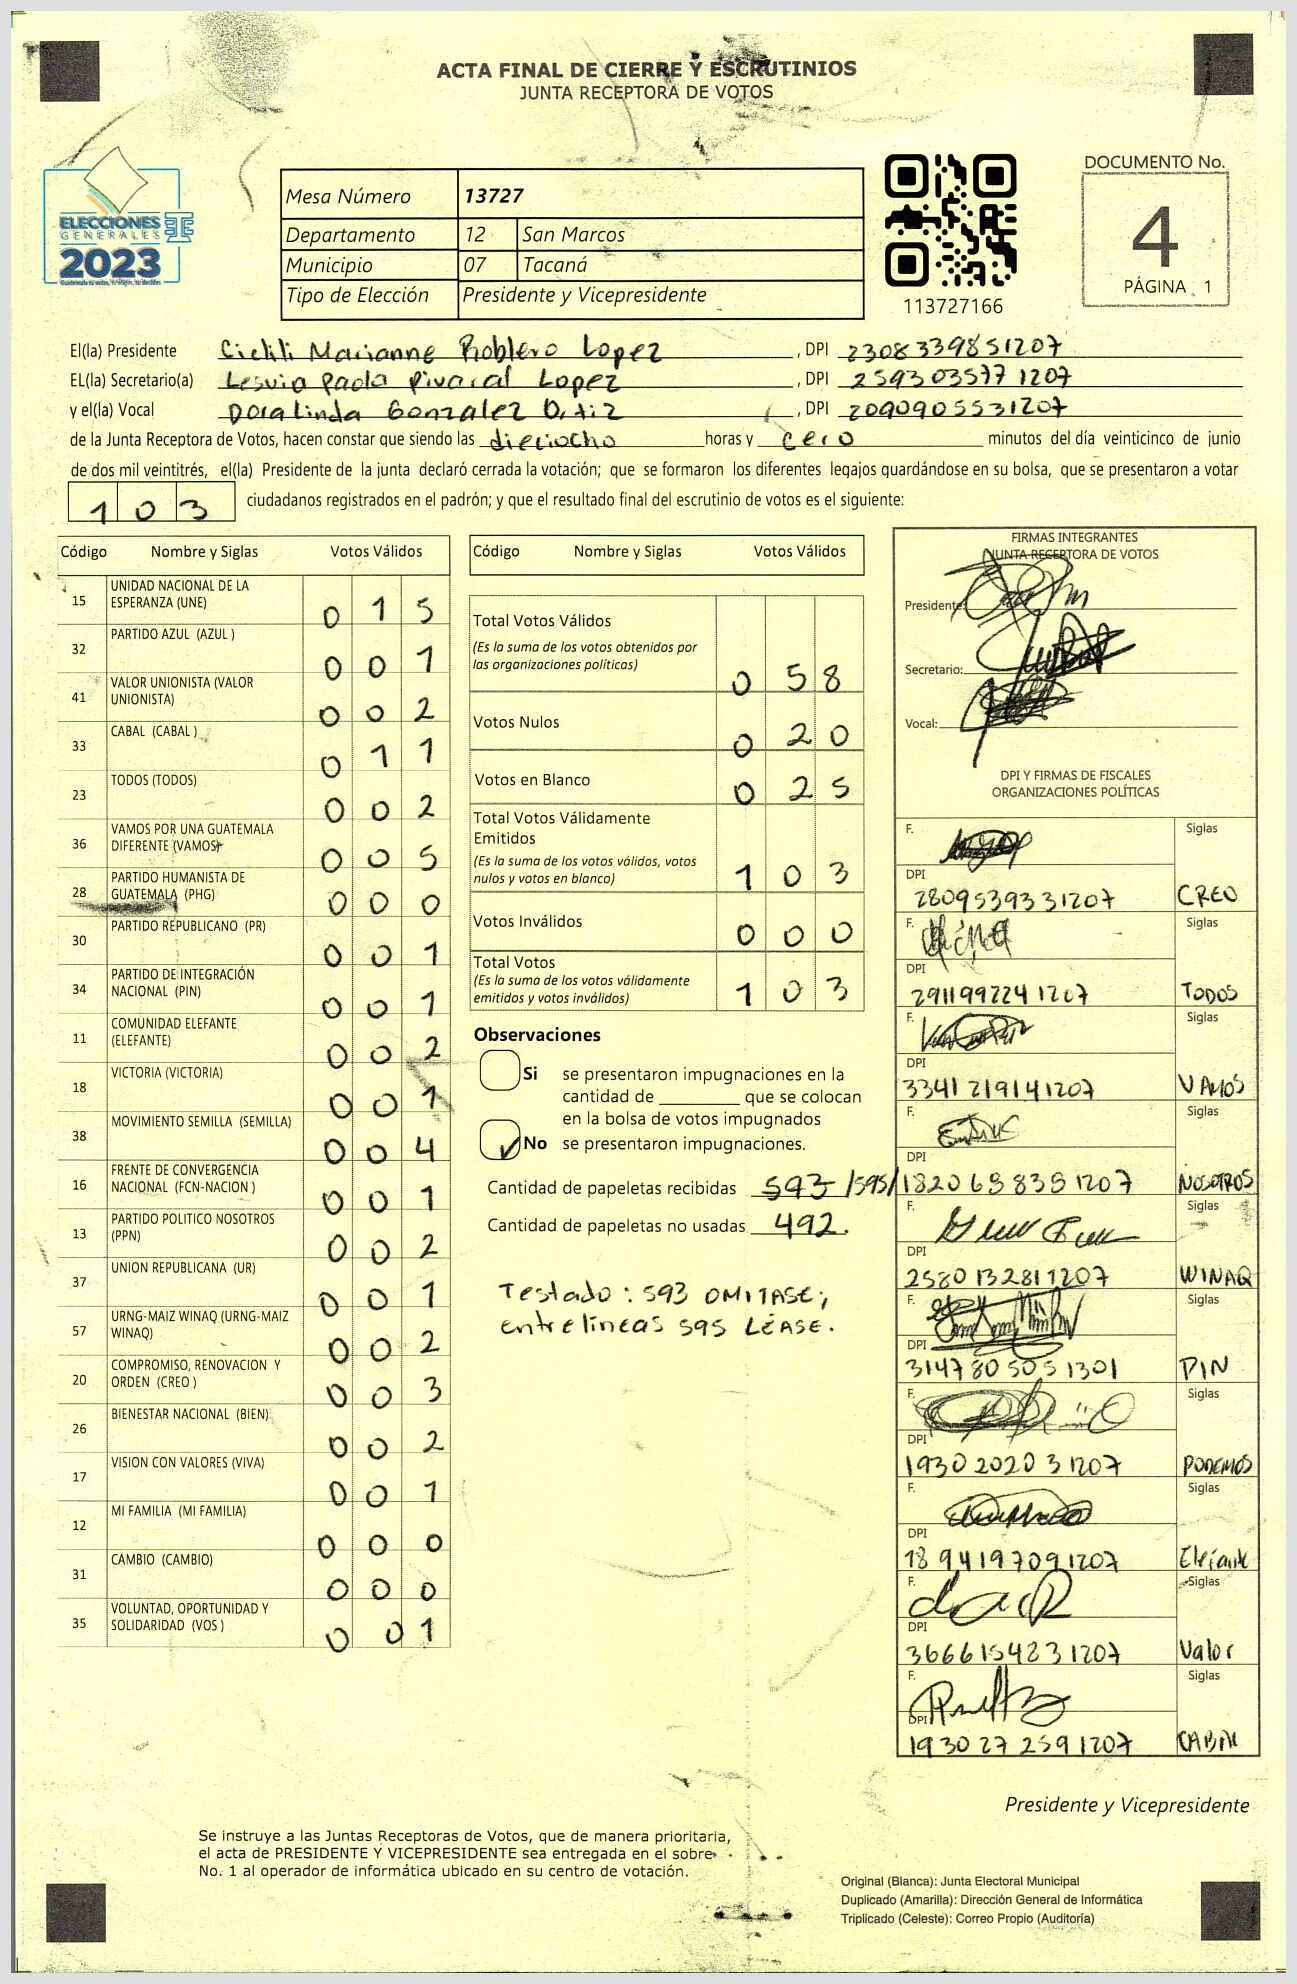 ACTA FINAL DE CIERRE Y ESCRUTINIOS
JUNTA RECEPTORA DE VOTOS
ELECCIONES
GENERALES
2023
Mesa Número 13727
Departamento 12 San Marcos
Municipio 07 Tacaná
Tipo de Elección Presidente y Vicepresidente
113727166
DOCUMENTO No.
4
PÁGINA 1
El(la) Presidente Marianne Roblero Lopez, DPI 2308339851207
EL(la) Secretario(a) Lesvia Paola Pivaral Lopez, DPI 2593035771207
y el(la) Vocal Doralinda Gonzalez Ortiz, DPI 2090905531207
de la Junta Receptora de Votos, hacen constar que siendo las dieciocho horas y cero minutos del día veinticinco de junio
de dos mil veintitrés, el(la) Presidente de la junta declaró cerrada la votación; que se formaron los diferentes legajos guardándose en su bolsa, que se presentaron a votar
103 ciudadanos registrados en el padrón; y que el resultado final del escrutinio de votos es el siguiente:
Código Nombre y Siglas Votos Válidos
15 UNIDAD NACIONAL DE LA ESPERANZA (UNE) 015
32 PARTIDO AZUL (AZUL ) 001
41 VALOR UNIONISTA (VALOR UNIONISTA) 002
33 CABAL (CABAL ) 011
23 TODOS (TODOS) 002
36 VAMOS POR UNA GUATEMALA DIFERENTE (VAMOS) 005
28 PARTIDO HUMANISTA DE GUATEMALA (PHG) 000
30 PARTIDO REPUBLICANO (PR) 001
34 PARTIDO DE INTEGRACIÓN NACIONAL (PIN) 001
11 COMUNIDAD ELEFANTE (ELEFANTE) 002
18 VICTORIA (VICTORIA) 001
38 MOVIMIENTO SEMILLA (SEMILLA) 004
16 FRENTE DE CONVERGENCIA NACIONAL (FCN-NACION ) 001
13 PARTIDO POLITICO NOSOTROS (PPN) 002
37 UNION REPUBLICANA (UR) 001
57 URNG-MAIZ WINAQ (URNG-MAIZ WINAQ) 002
20 COMPROMISO, RENOVACION Y ORDEN (CREO ) 003
26 BIENESTAR NACIONAL (BIEN) 002
17 VISION CON VALORES (VIVA) 001
12 MI FAMILIA (MI FAMILIA) 000
31 CAMBIO (CAMBIO) 000
35 VOLUNTAD, OPORTUNIDAD Y SOLIDARIDAD (VOS ) 001
Código Nombre y Siglas Votos Válidos
Total Votos Válidos 058
(Es la suma de los votos obtenidos por
las organizaciones políticas)
Votos Nulos 020
Votos en Blanco 025
Total Votos Válidamente
Emitidos 103
(Es la suma de los votos válidos, votos
nulos y votos en blanco)
Votos Inválidos 000
Total Votos 103
(Es la suma de los votos válidamente
emitidos y votos inválidos)
Observaciones
Si se presentaron impugnaciones en la
cantidad de ________ que se colocan
en la bolsa de votos impugnados
No se presentaron impugnaciones.
Cantidad de papeletas recibidas 593 /595/
Cantidad de papeletas no usadas 492.
Testado: 593 OMITASE;
entrelíneas 595 LÉASE.
FIRMAS INTEGRANTES
JUNTA RECEPTORA DE VOTOS
Presidente:
Secretario:
Vocal:
DPI Y FIRMAS DE FISCALES
ORGANIZACIONES POLÍTICAS
F. Siglas
DPI
2809539331207 CREO
F. Siglas
DPI
2911992241207 TODOS
F. Siglas
DPI
3341219141207 VAMOS
F. Siglas
DPI
1820658351207 NOSOTROS
F. Siglas
DPI
2580132811207 WINAQ
F. Siglas
DPI
3147805051301 PIN
F. Siglas
DPI
1930202031207 PODEMOS
F. Siglas
DPI
1894197091207 Elefante
F. Siglas
DPI
3666154231207 Valor
F. Siglas
DPI
1930272591207 CABAL
Presidente y Vicepresidente
Se instruye a las Juntas Receptoras de Votos, que de manera prioritaria,
el acta de PRESIDENTE Y VICEPRESIDENTE sea entregada en el sobre
No. 1 al operador de informática ubicado en su centro de votación.
Original (Blanca): Junta Electoral Municipal
Duplicado (Amarilla): Dirección General de Informática
Triplicado (Celeste): Correo Propio (Auditoría)